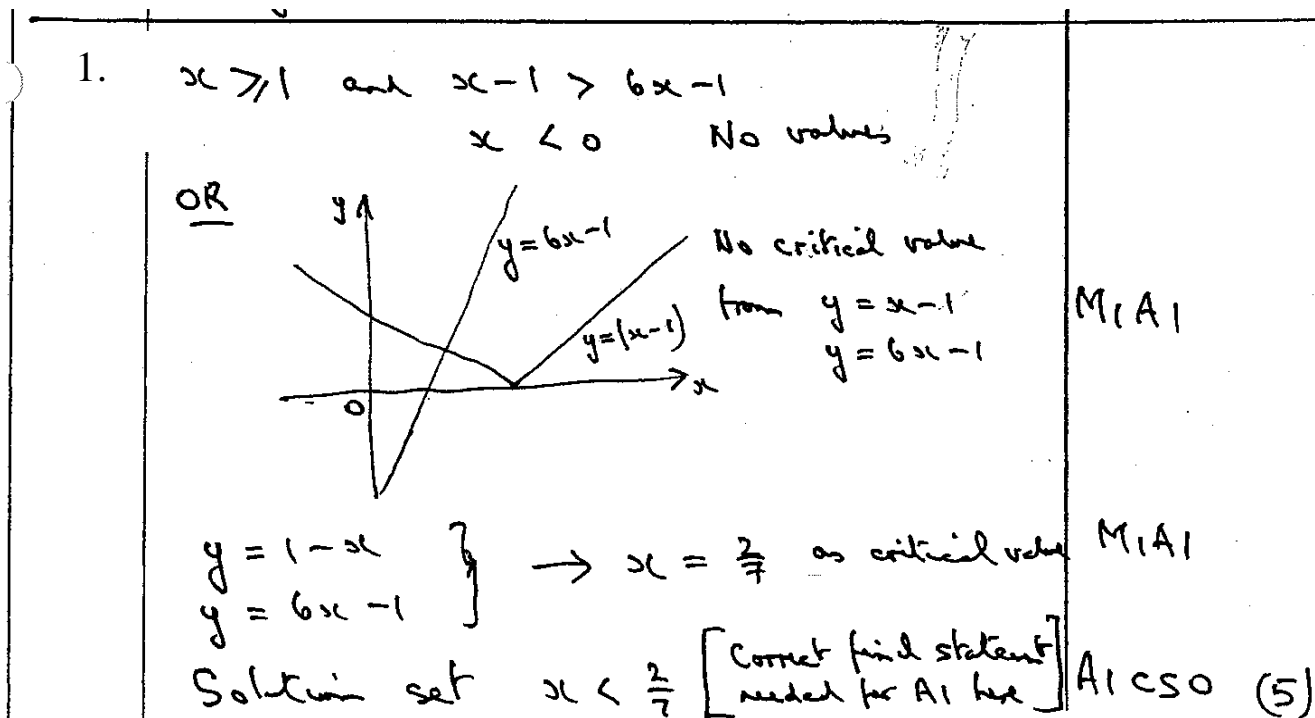 1. x ⩾ 1 and x - 1 > 6x - 1
x < 0 No values
OR
y
y = 6x - 1
No critical value
from y = x - 1
y = 6x - 1
M1 A1
y = |x - 1|
x
0
y = 1 - x
y = 6x - 1
} → x = 2/7 as critical value M1 A1
Solution set x < 2/7 [Correct final statement
needed for A1 here] A1 cso (5)